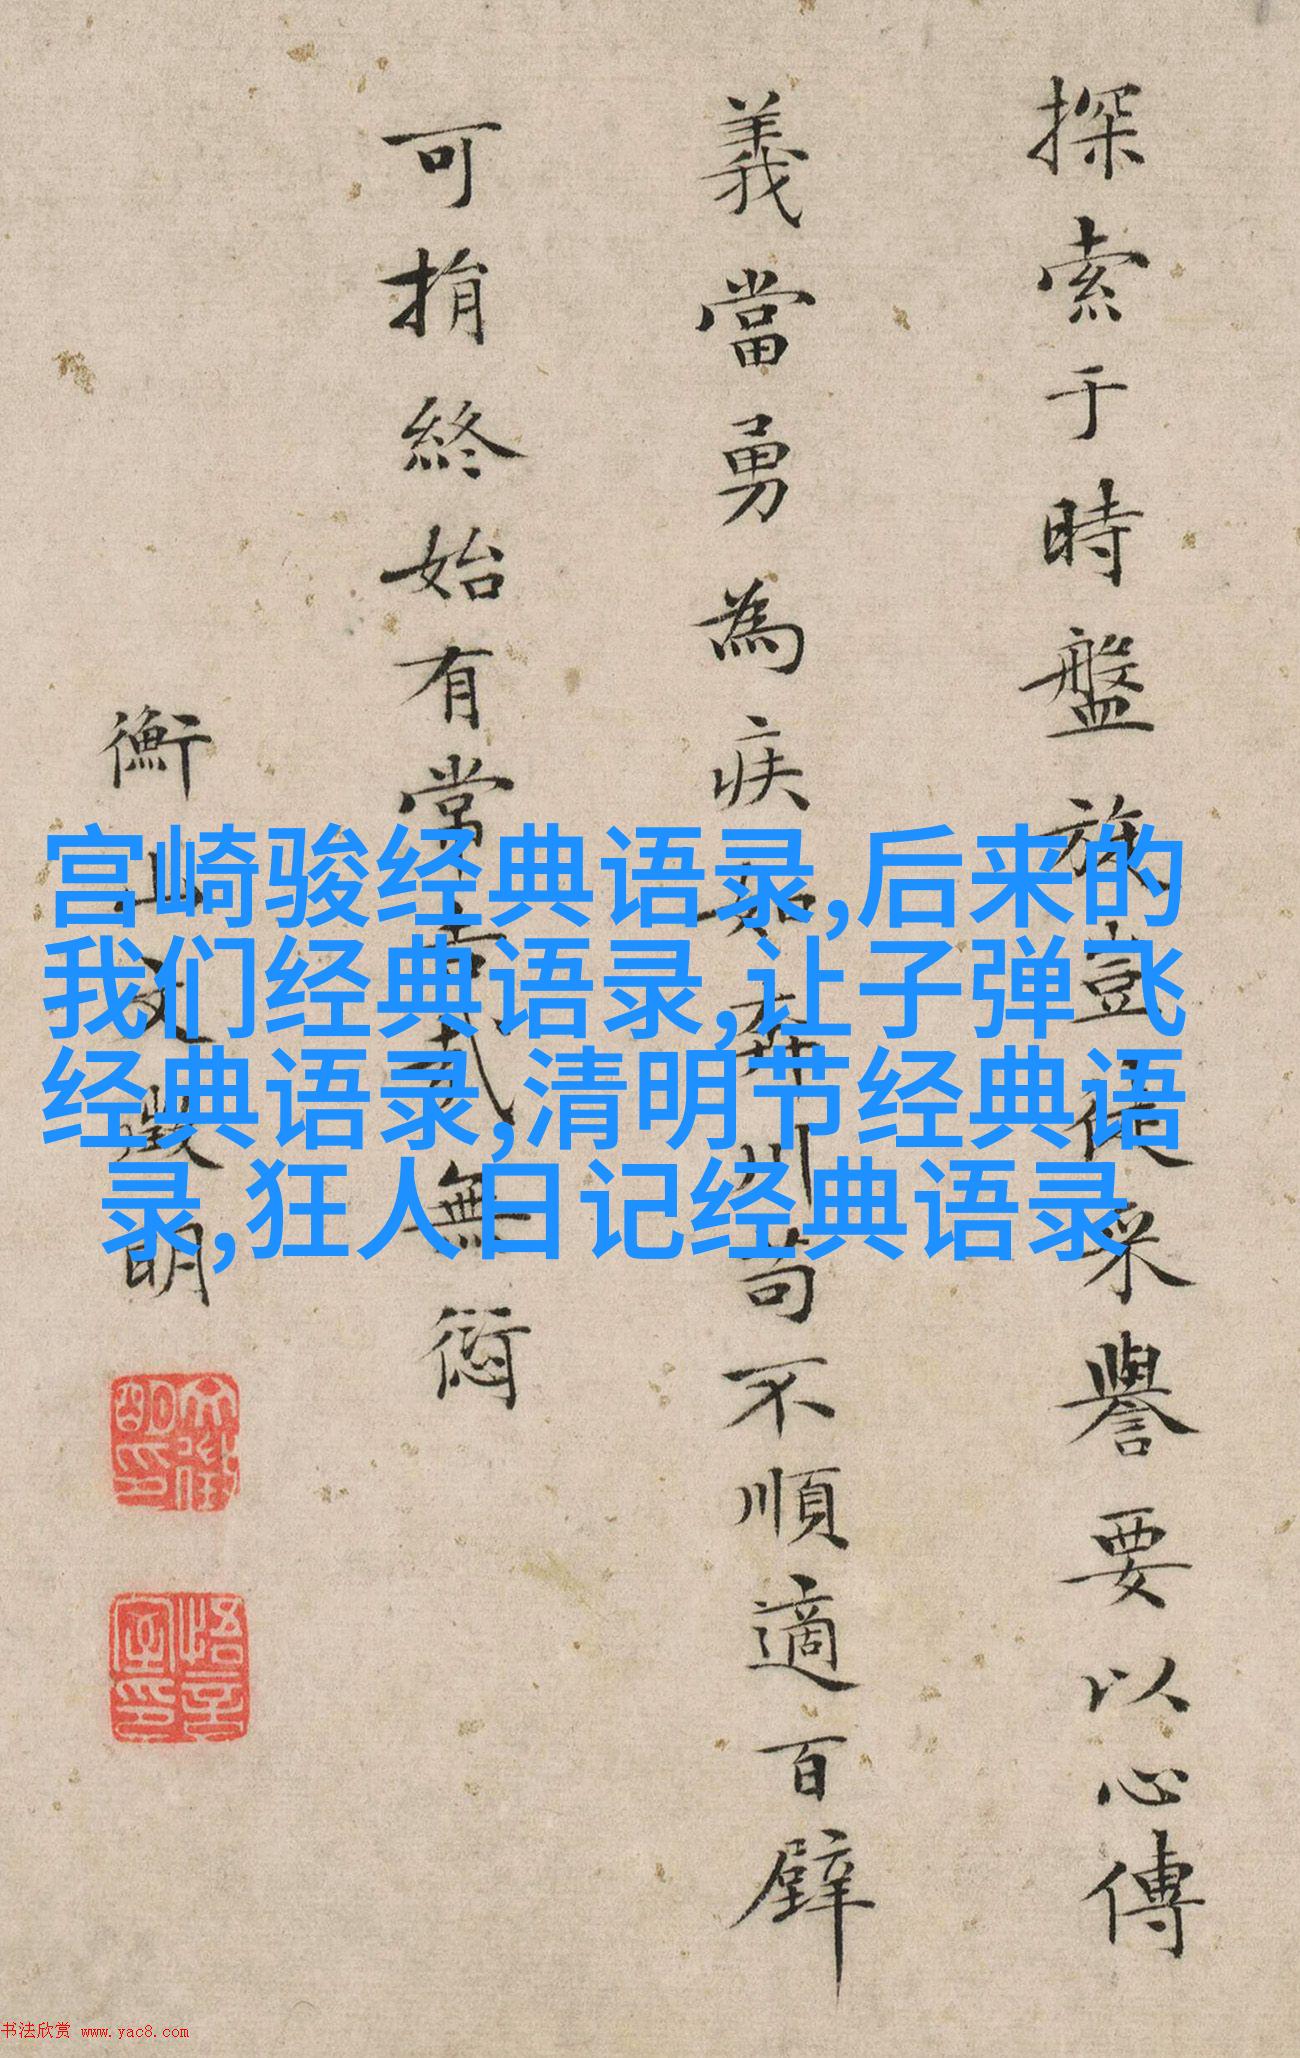 探索于時盤旋豈徒采譽要以心傳
義當勇為疾如奔川苟不順適百
可捐終始有常古式無愆
衡山文徵明
宫崎骏经典语录,后来的
我们经典语录,让子弹飞
经典语录,清明节经典语
录,狂人日记经典语录
书法欣赏 www.yac8.com